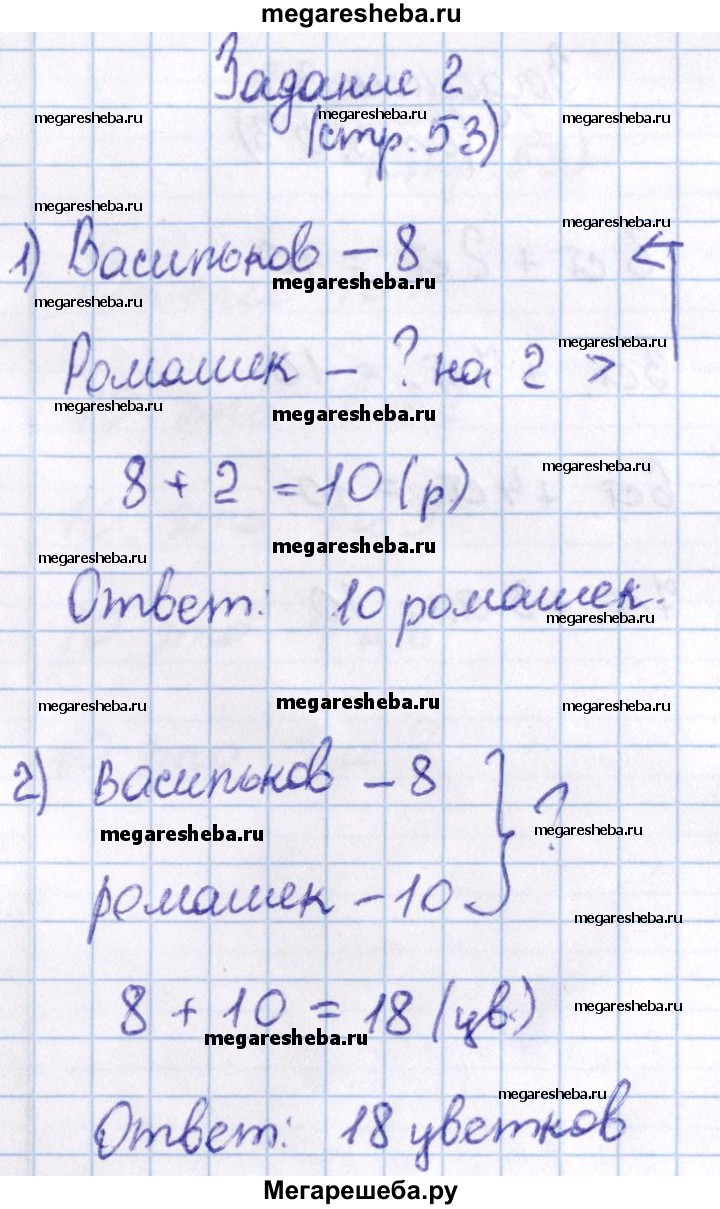 megaresheba.ru
Задание 2
megaresheba.ru megaresheba.ru megaresheba.ru
(стр. 53)
megaresheba.ru
megaresheba.ru
1) Васильков – 8
megaresheba.ru
megaresheba.ru
megaresheba.ru
Ромашек – ? на 2 >
megaresheba.ru
megaresheba.ru
8 + 2 = 10 (р)
megaresheba.ru
megaresheba.ru
megaresheba.ru
Ответ: 10 ромашек.
megaresheba.ru
megaresheba.ru megaresheba.ru megaresheba.ru
2) васильков – 8
} ?
megaresheba.ru megaresheba.ru
ромашек – 10
megaresheba.ru
8 + 10 = 18 (цв.)
megaresheba.ru
megaresheba.ru
megaresheba.ru
Ответ: 18 цветков
Мегарешеба.ру